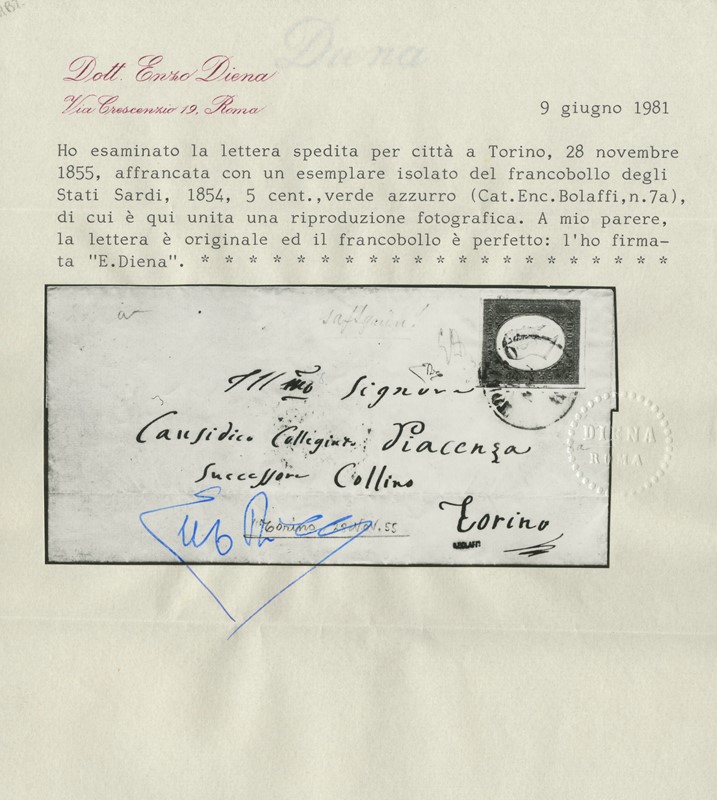 Diena
Dott. Enzo Diena
Via Crescenzio 19, Roma
9 giugno 1981
Ho esaminato la lettera spedita per città a Torino, 28 novembre
1855, affrancata con un esemplare isolato del francobollo degli
Stati Sardi, 1854, 5 cent.,verde azzurro (Cat.Enc.Bolaffi,n.7a),
di cui è qui unita una riproduzione fotografica. A mio parere,
la lettera è originale ed il francobollo è perfetto: l'ho firma-
ta "E.Diena". * * * * * * * * * * * * * * * * * * * *
Ill mo Signore
Causidico Collegiato Piacenza
Successore Collino
Torino
Torino 28 NOV. 55
BOLAFFI
DIENA
ROMA